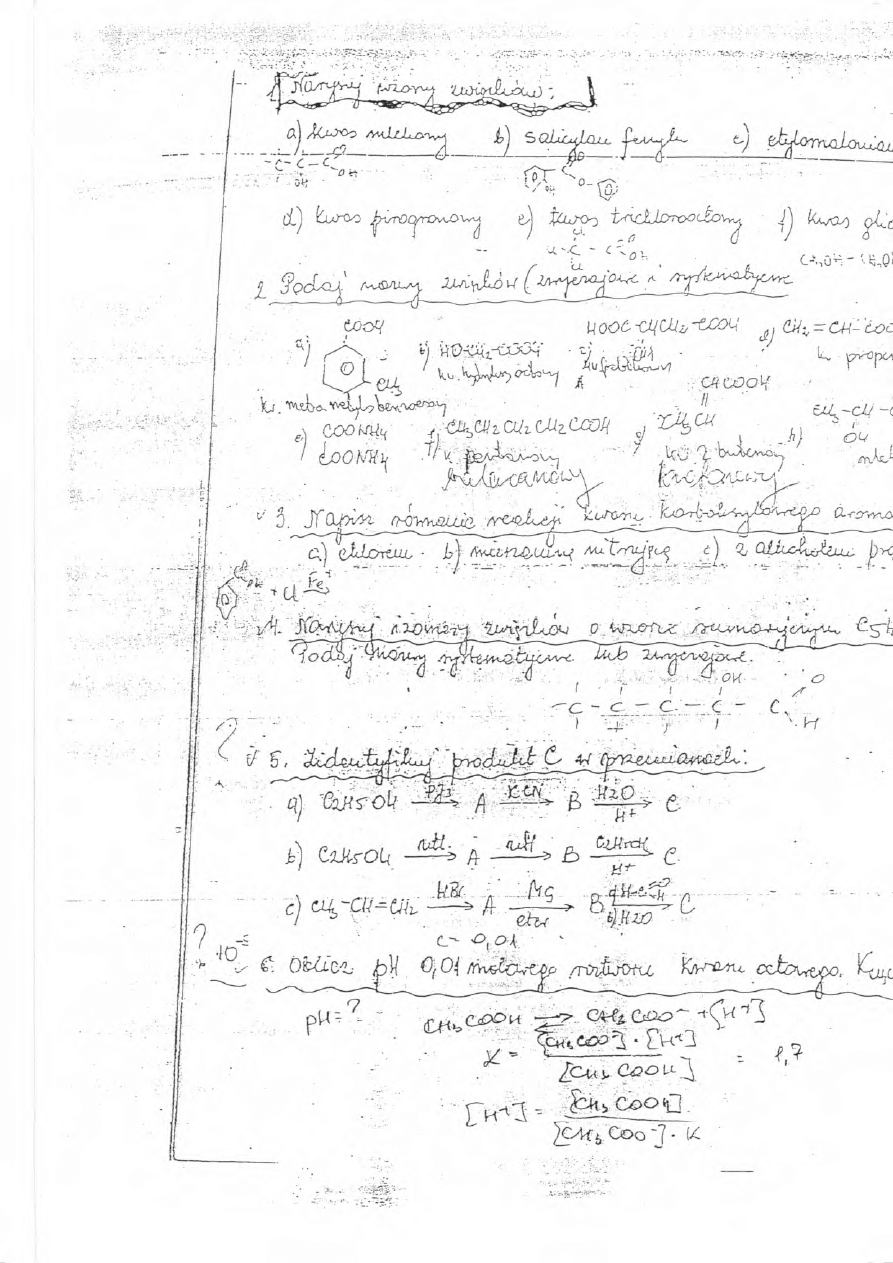 1. Narysuj wzory związków:
a) kwas mlekowy b) salicylan fenylu c) etylomalonian
d) kwas pirogronowy e) kwas trichlorooctowy f) kwas glic
2 Podaj nazwy związków (zwyczajowe i systematyczne
a) COOH
CH3
kw. meta metylobenzoesowy
b) HO-CH2-COOH
kw. hydroksyoctowy
c) HOOC-CHCH2-COOH
OH
d) CH2=CH-COO
k. prope
e) COONH4
COONH4
f) CH3CH2CH2CH2COOH
k pentanowy
walerianowy
g) CHCOOH
CH3CH
2 butenowy
krotonowy
h) CH3-CH-C
OH
mle
3. Napisz równanie reakcji kwasu karboksylowego aroma
a) chlorem b) mieszaniną nitrującą c) z alkoholem pro
+ Cl Fe
4. Narysuj izomery związków o wzorze sumarycznym C5H
Podaj nazwy systematyczne lub zwyczajowe.
OH O
-C-C-C-C- C
H
? 5. Zidentyfikuj produkt C w przemianach:
a) C2H5OH PJ3 A KCN B H2O H+ C
b) C2H5OH utl. A utl B C2H5OH H+ C
c) CH3-CH=CH2 HBr A Mg eter B a) H-C b) H2O C
c= 0,01
? 6. Oblicz pH 0,01 molowego roztworu kwasu octowego.
pH=? CH3COOH ⇌ CH3COO- + [H+]
K = [CH3COO-]·[H+] / [CH3COOH] = 1,7
[H+] = [CH3COOH] / [CH3COO-]·K